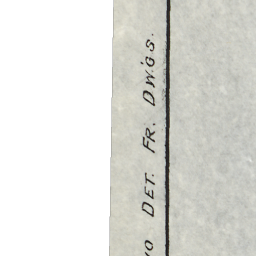 DET. FR. DW'G'S.